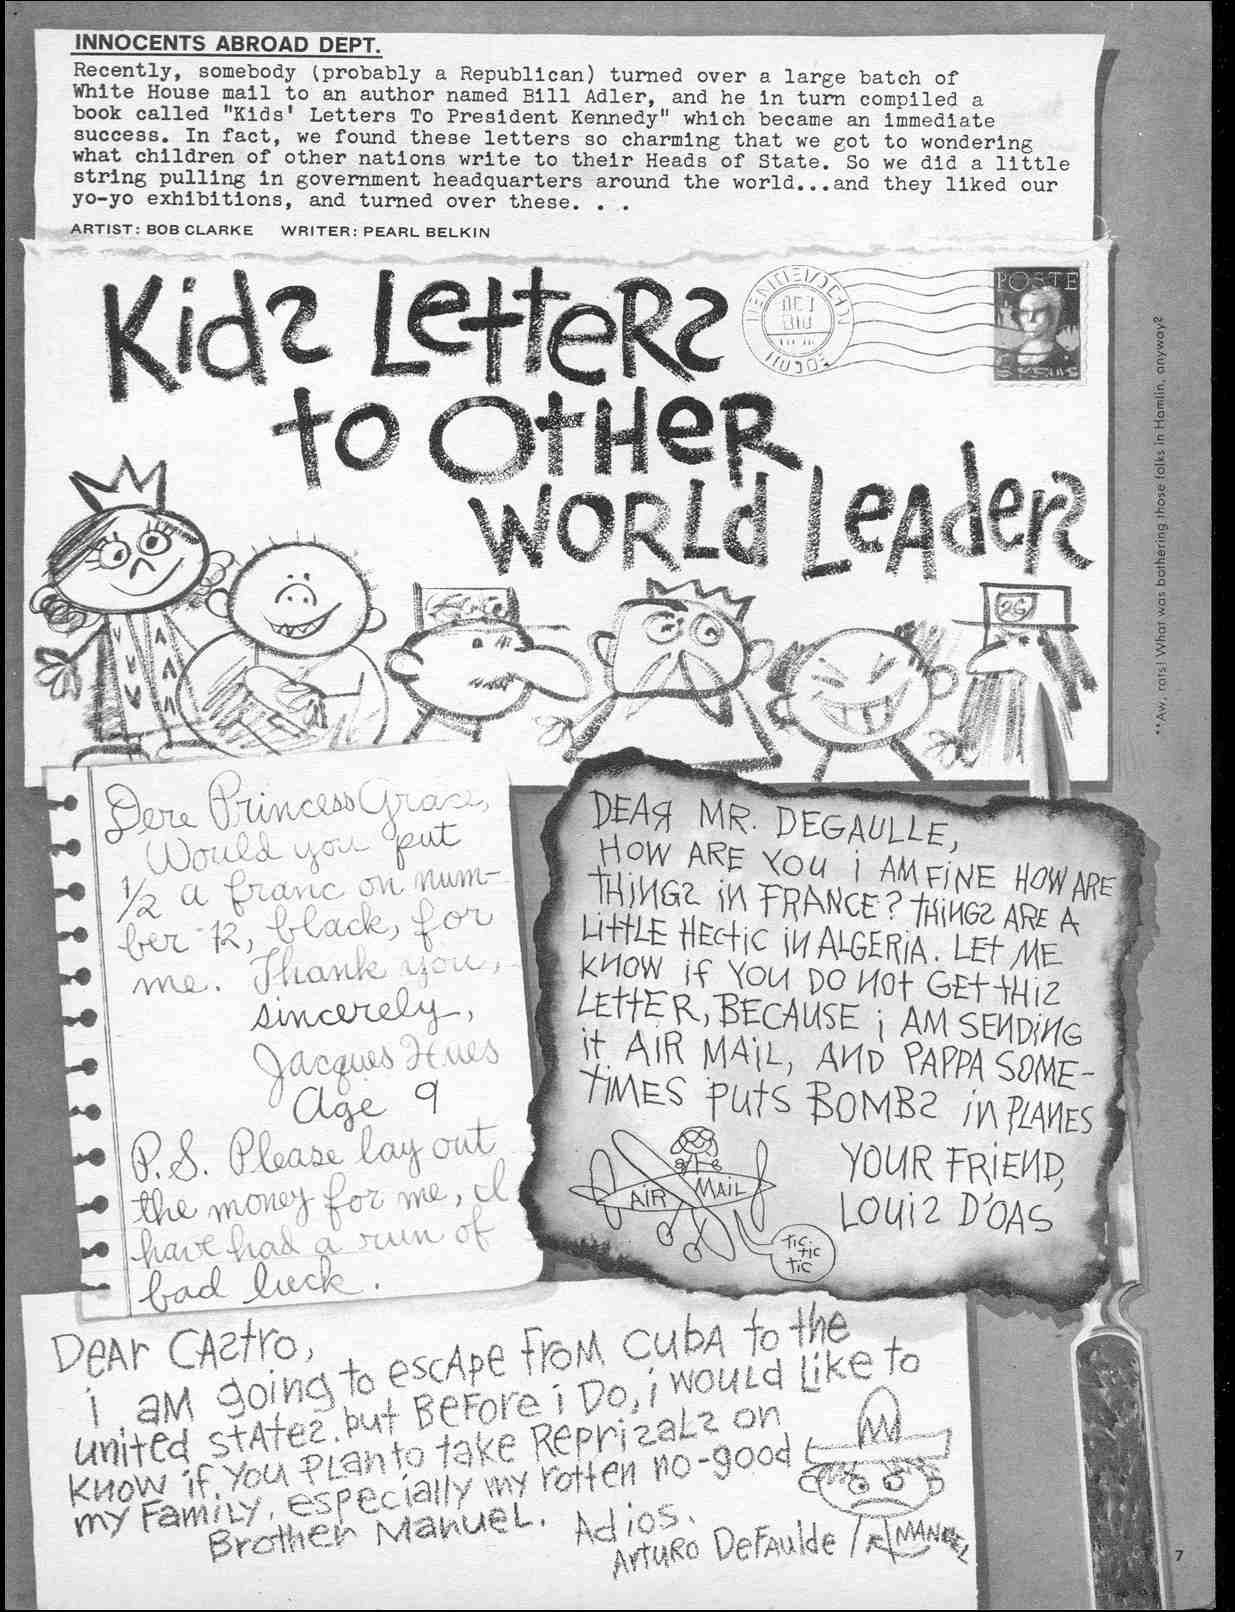 INNOCENTS ABROAD DEPT.
Recently, somebody (probably a Republican) turned over a large batch of
White House mail to an author named Bill Adler, and he in turn compiled a
book called "Kids' Letters To President Kennedy" which became an immediate
success. In fact, we found these letters so charming that we got to wondering
what children of other nations write to their Heads of State. So we did a little
string pulling in government headquarters around the world...and they liked our
yo-yo exhibitions, and turned over these. . .
ARTIST: BOB CLARKE WRITER: PEARL BELKIN
Kids Letters
to Other
World Leaders
POSTE
26
**Aw, rats! What was bothering those folks in Hamlin, anyway?
Dere Princess Grace,
Would you put
1/2 a franc on num-
ber 12, black, for
me. Thank you,
sincerely,
Jacques Hues
Age 9
P.S. Please lay out
the money for me, I
have had a run of
bad luck.
DEAR MR. DEGAULLE,
HOW ARE YOU i AM FiNE HOW ARE
THiNGS iN FRANCE? THiNGS ARE A
LittLE HECtiC iN ALGERiA. LEt ME
KNOW if YOU DO NOt GEt tHiS
LEttER, BECAUSE i AM SENDiNG
it AiR MAiL, AND PAPPA SOME-
TiMES PUtS BOMBS iN PLANES
YOUR FRiEND,
LOUiS D'OAS
AiR MAiL
tic
tic
tic
DeAr CAstro,
i aM going to escApe froM CubA to the
united stAtes. but BeFore i Do, i would Like to
know if you PLan to take ReprisaLs on
my FaMiLy, especially my rotten no-good
Brother ManueL. Adios.
ArtuRo DeFAulde
MANUEL
7